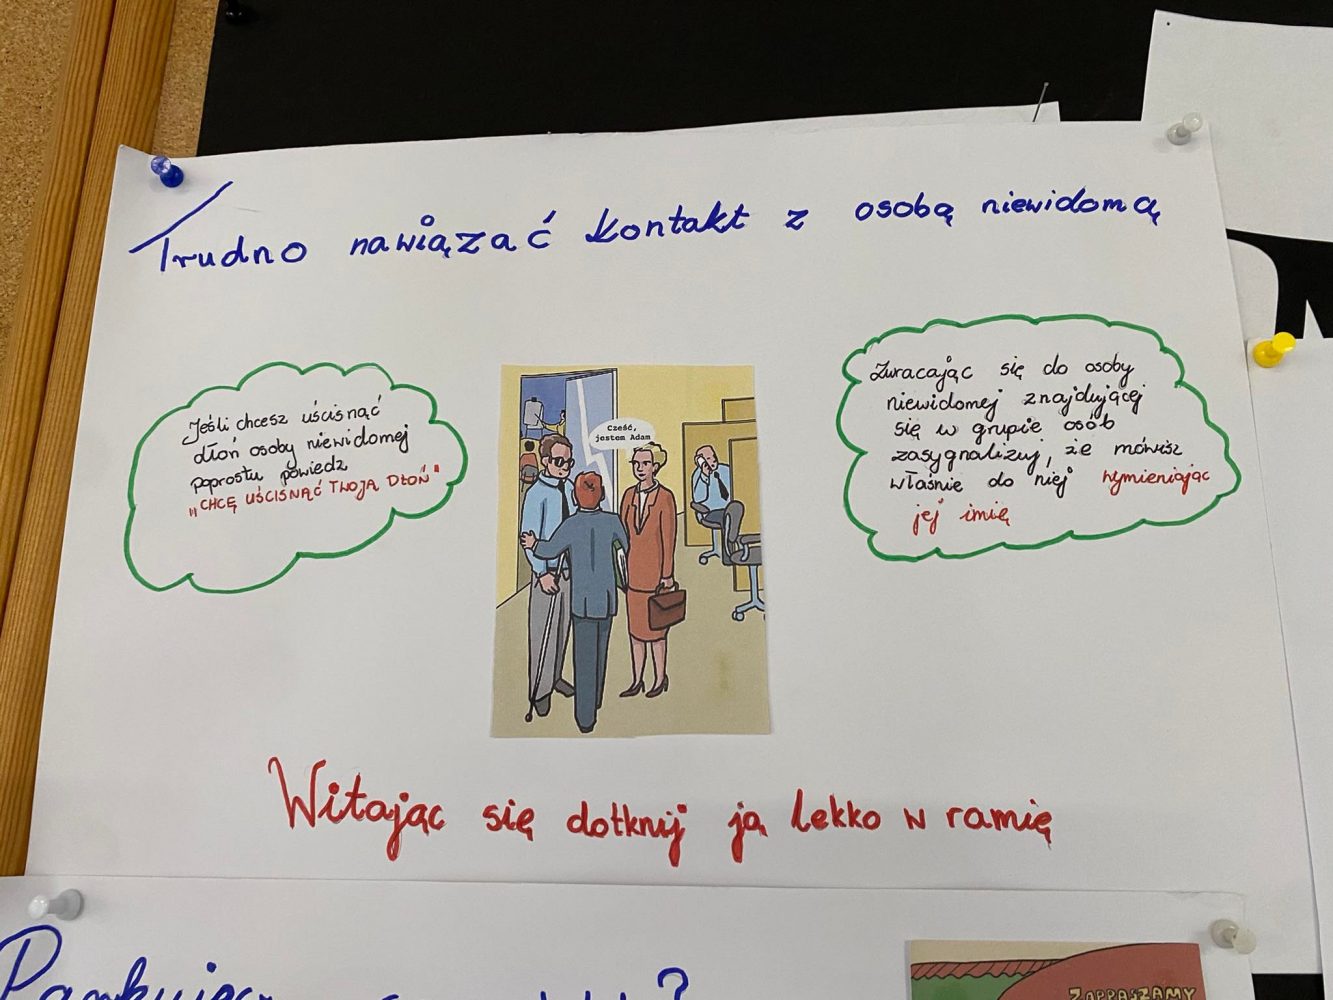 Trudno nawiązać kontakt z osobą niewidomą
Jeśli chcesz uścisnąć
dłoń osoby niewidomej
poprostu powiedz
"CHCĘ UŚCISNĄĆ TWOJĄ DŁOŃ"
Cześć,
jestem Adam
Zwracając się do osoby
niewidomej znajdującej
się w grupie osób
zasygnalizuj, że mówisz
właśnie do niej wymieniając
jej imię
Witając się dotknij ją lekko w ramię
?
ZAPRASZAMY